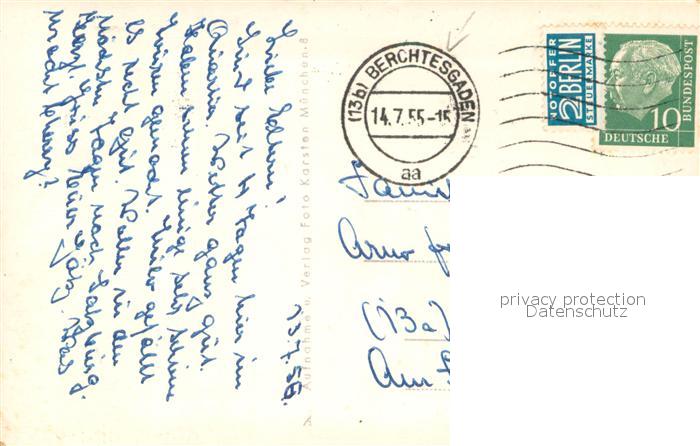 13.7.55.
Liebe Eltern!
Sind seit 4 Tagen hier im
Quartier. Wetter ganz gut.
Haben schon einige sehr schöne
Touren gemacht. gefällt
es recht gut. Wollen in den
nächsten Tagen nach Salzburg.
Herzl. Grüsse Heiner u.
macht
Aufnahme u. Verlag Foto Karsten München-8
A
(13b) BERCHTESGADEN
14.7.55-15
aa
NOTOPFER
2 BERLIN
STEUERMARKE
DEUTSCHE
BUNDESPOST
10
Arno
(13a)
Am
privacy protection
Datenschutz